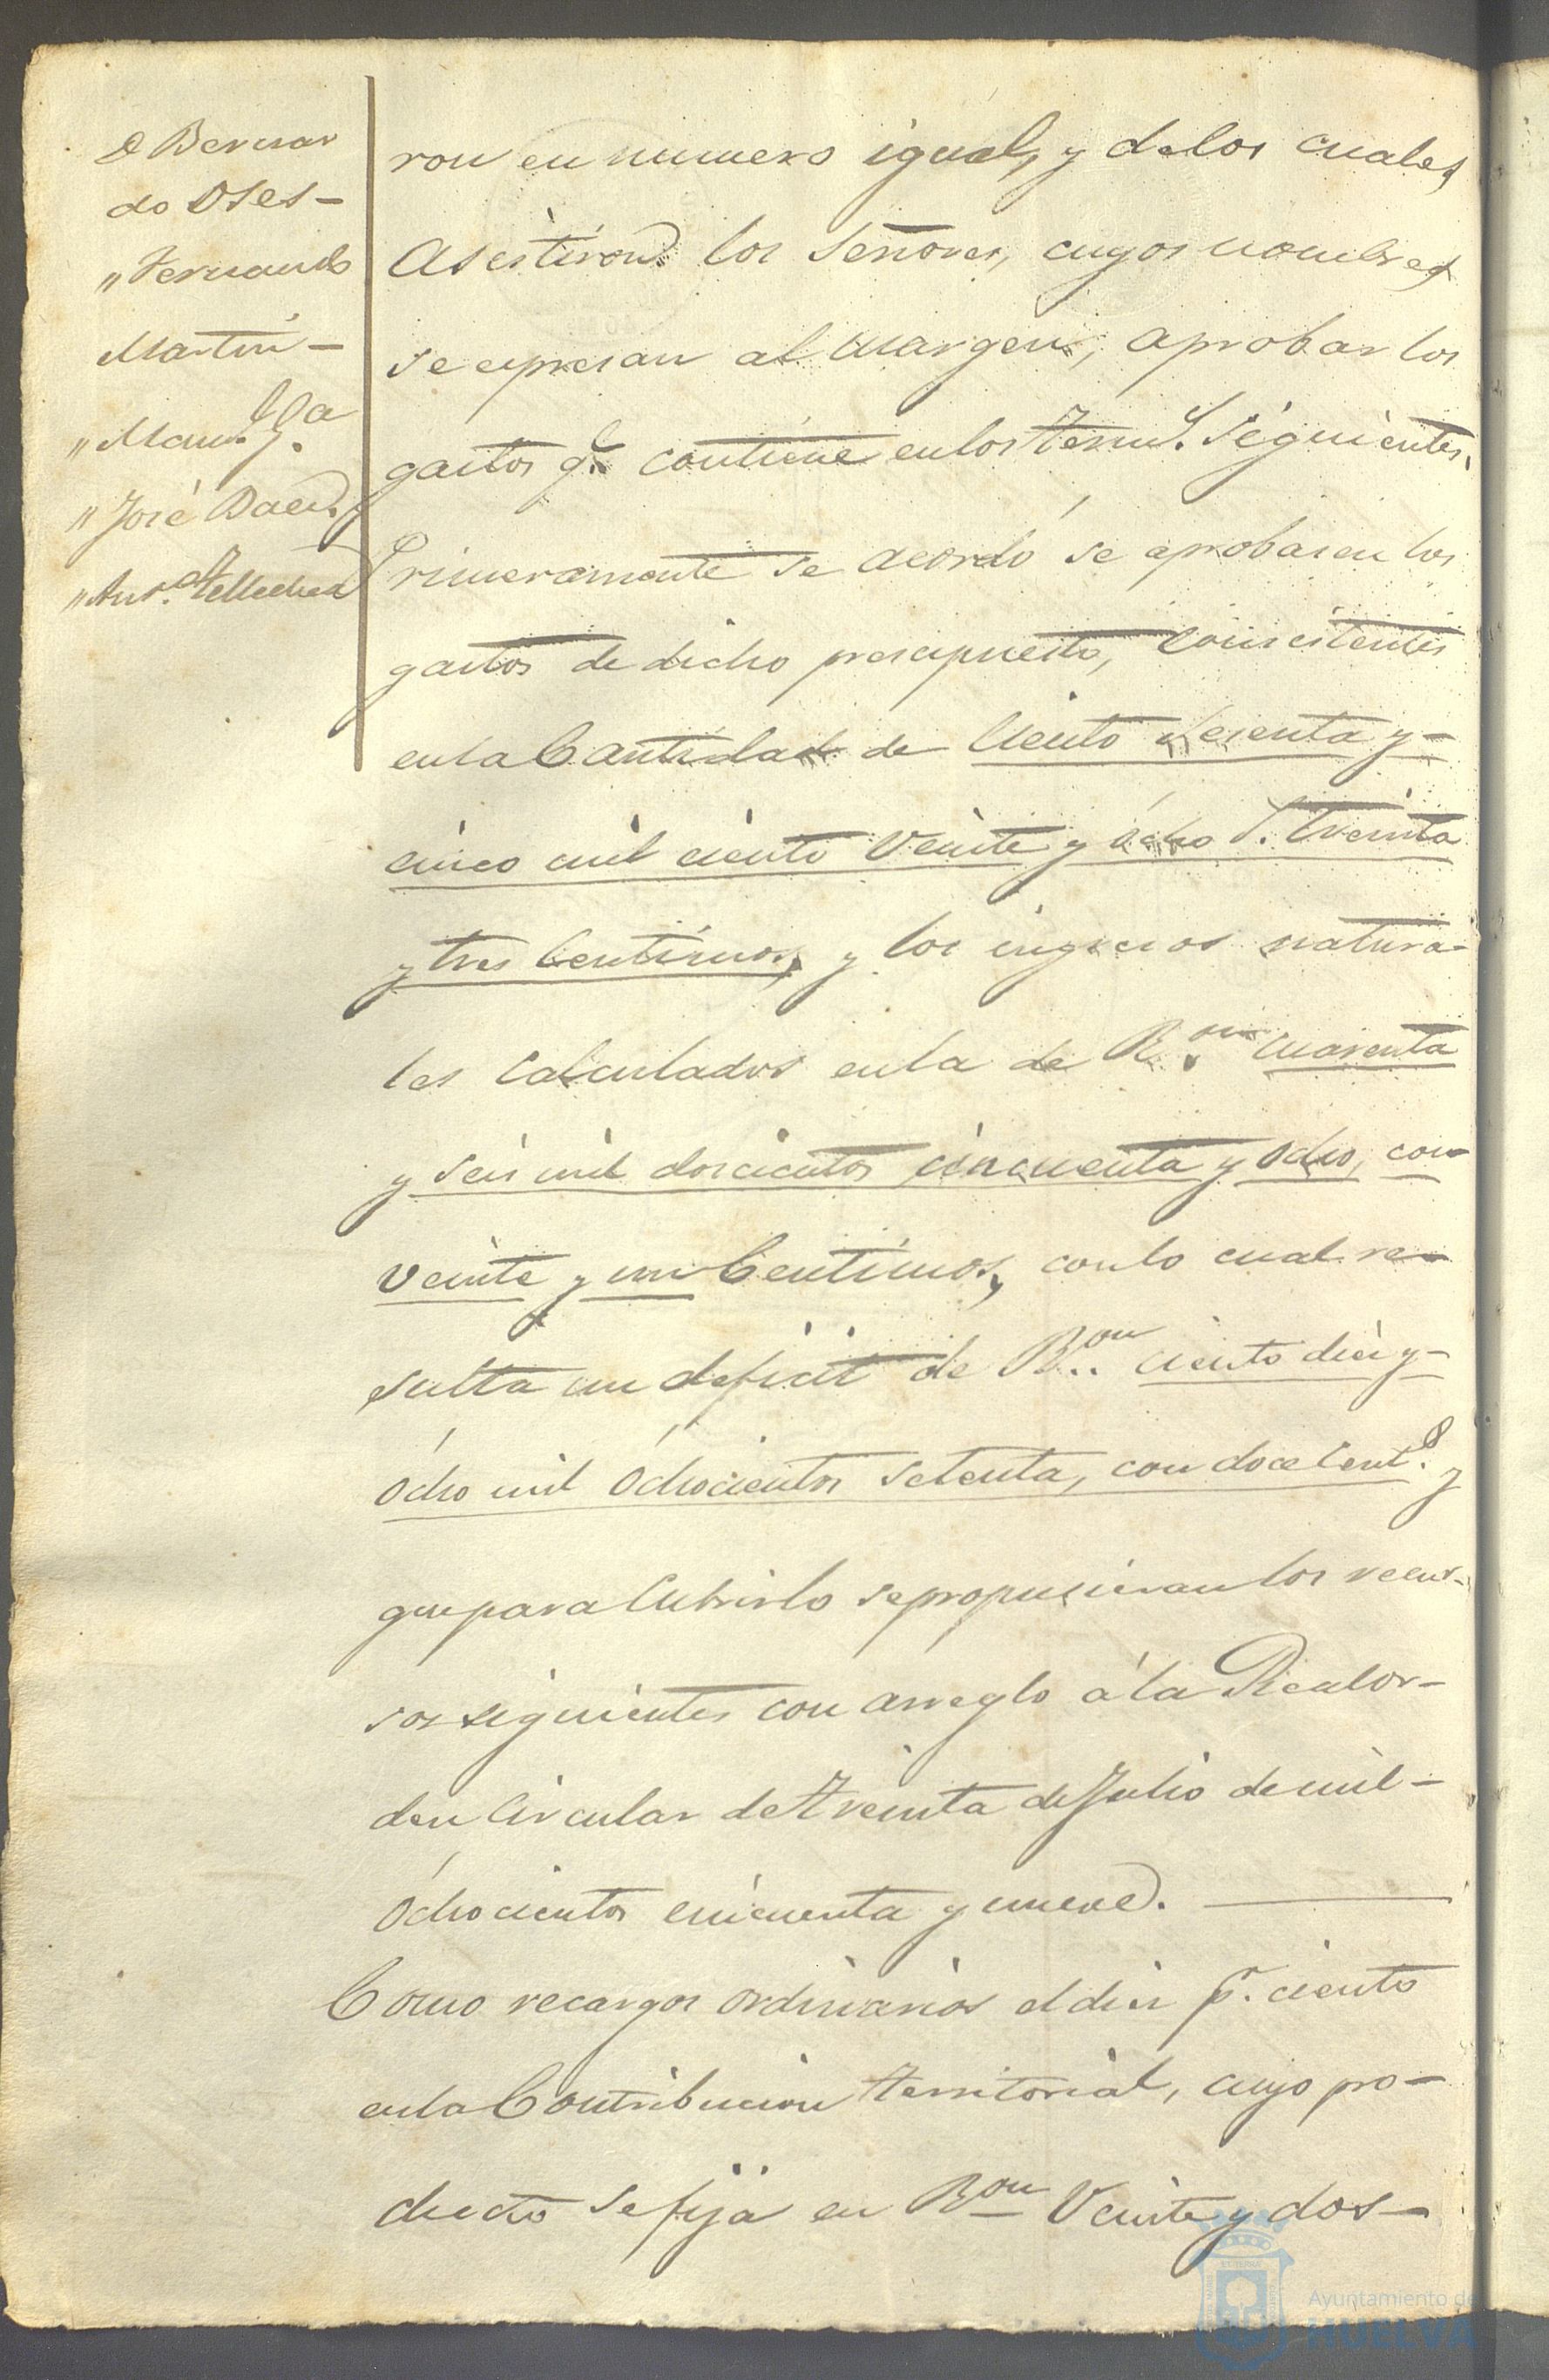 D Bernar
do Oses -
" Fernando
Martin -
" Man.l G.a
" José Daed.
" Ant.o Tellechea
ron en numero igual, y de los cuales
Asistieron los Señores, cuyos nombres
se espresan al margen, aprobar los
gastos q.e contiene en los term.s siguientes.
Primeramente se acordó se aprobasen los
gastos de dicho presupuesto, consistentes
en la Cantidad de Ciento sesenta y -
cinco mil ciento Veinte y ócho r. treinta
y tres Centimos, y los ingresos natura-
les calculados en la de R.on cuarenta
y seis mil doscientos cincuenta y ocho, con
veinte y un Centimos, con lo cual re-
sulta un deficit de R.on ciento diez y -
ócho mil óchocientos setenta, con doce Cent.s y
que para Cubrirlo se propusieran los recur-
sos siguientes con arreglo á la Real or-
den Circular de treinta de Julio de mil -
óchocientos cincuenta y nueve.
Como recargos ordinarios el diez p.r ciento
en la Contribucion territorial, cuyo pro-
ducto se fija en R.on Veinte y dos -
Ayuntamiento de
HUELVA